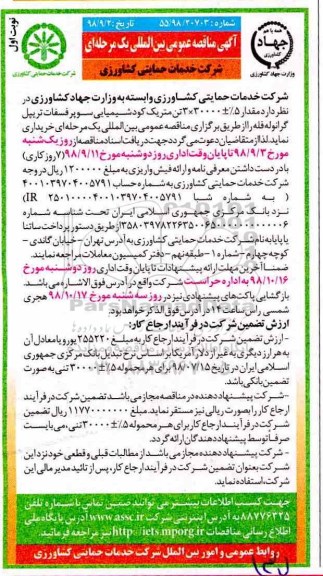 شماره : ۵۵/۹۸/۲۰۷۰۳ تاریخ: ۹۸/۹/۲
نوبت اول
آگهی مناقصه عمومی بین‌المللی یک مرحله‌ای
شرکت خدمات حمایتی کشاورزی
جهاد
وزارت جهاد کشاورزی
شرکت خدمات حمایتی کشاورزی
شرکت خدمات حمایتی کشاورزی وابسته به وزارت جهاد کشاورزی در
نظر دارد مقدار ۵٪±۳۰۰۰۰×۳ تن متریک کود شیمیایی سوپر فسفات تریپل
گرانوله فله را از طریق برگزاری مناقصه عمومی بین‌المللی یک مرحله‌ای خریداری
نماید. لذا از متقاضیان دعوت می‌گردد جهت دریافت اسناد مناقصه از روز یک‌شنبه
مورخ ۹۸/۹/۳ تا پایان وقت اداری روز دوشنبه مورخ ۹۸/۹/۱۱ (۷ روز کاری)
با در دست داشتن معرفی نامه و ارائه فیش واریزی به مبلغ ۱۲۰۰۰۰۰ ریال در وجه
شرکت خدمات حمایتی کشاورزی به شماره حساب ۴۰۰۱۰۳۹۷۰۴۰۰۵۷۹۱
( به شماره شبا IR ۲۵۰۱۰۰۰۰۴۰۰۱۰۳۹۷۰۴۰۰۵۷۹۱ )
نزد بانک مرکزی جمهوری اسلامی ایران تحت شناسه شماره
از طریق دستور پرداخت ساتنا
یا پایا به نام شرکت خدمات حمایتی کشاورزی به آدرس تهران - خیابان گاندی -
کوچه چهارم - شماره ۱ - طبقه نهم - دفتر کمیسیون معاملات مراجعه نمایند.
ضمناً آخرین مهلت ارائه پیشنهادات تا پایان وقت اداری روز دوشنبه مورخ
۹۸/۱۰/۱۶ به اداره حراست شرکت واقع در آدرس فوق الاشاره می‌باشد.
بازگشایی پاکت‌های پیشنهادی نیز در روز سه شنبه مورخ ۹۸/۱۰/۱۷ هجری
شمسی راس ساعت ۱۴ در آدرس فوق الذکر خواهد بود.
ارزش تضمین شرکت در فرآیند ارجاع کار:
-ارزش تضمین شرکت در فرآیند ارجاع کار به مبلغ ۲۵۵۲۲۰ یورو یا معادل آن
به هر ارز دیگری به غیر از دلار آمریکا بر اساس نرخ تبدیل بانک مرکزی جمهوری
اسلامی ایران در تاریخ ۹۸/۰۷/۱۵ برای هر محموله ۵٪±۳۰۰۰۰ تنی به صورت
تضمین بانکی باشد.
-شرکت پیشنهاد دهنده در مناقصه مجاز می‌باشد تضمین شرکت در فرآیند
ارجاع کار را بصورت ریالی نیز مستقر نماید. مبلغ ۱۱۷۷۰۰۰۰۰۰۰ ریال تضمین
شرکت در فرآیند ارجاع کار برای هر محموله ۵٪±۳۰۰۰۰ تنی، می‌بایست
صرفاً توسط پیشنهاد دهندگان ارائه گردد.
- شرکت پیشنهاد دهنده مجاز می‌باشد از مطالبات قبلی و قطعی خود نزد این
شرکت بعنوان تضمین شرکت در فرآیند ارجاع کار، پس از تائید مدیر مالی این
شرکت، استفاده نماید.
جهت کسب اطلاعات بیشتر می توانید ضمن تماس با شماره تلفن
۸۸۷۷۶۳۲۵ به آدرس اینترنتی شرکت www.assc.ir و آدرس پایگاه ملی
اطلاع رسانی مناقصات http://iets.mporg.ir نیز مراجعه فرمائید.
روابط عمومی و امور بین الملل شرکت خدمات حمایتی کشاورزی